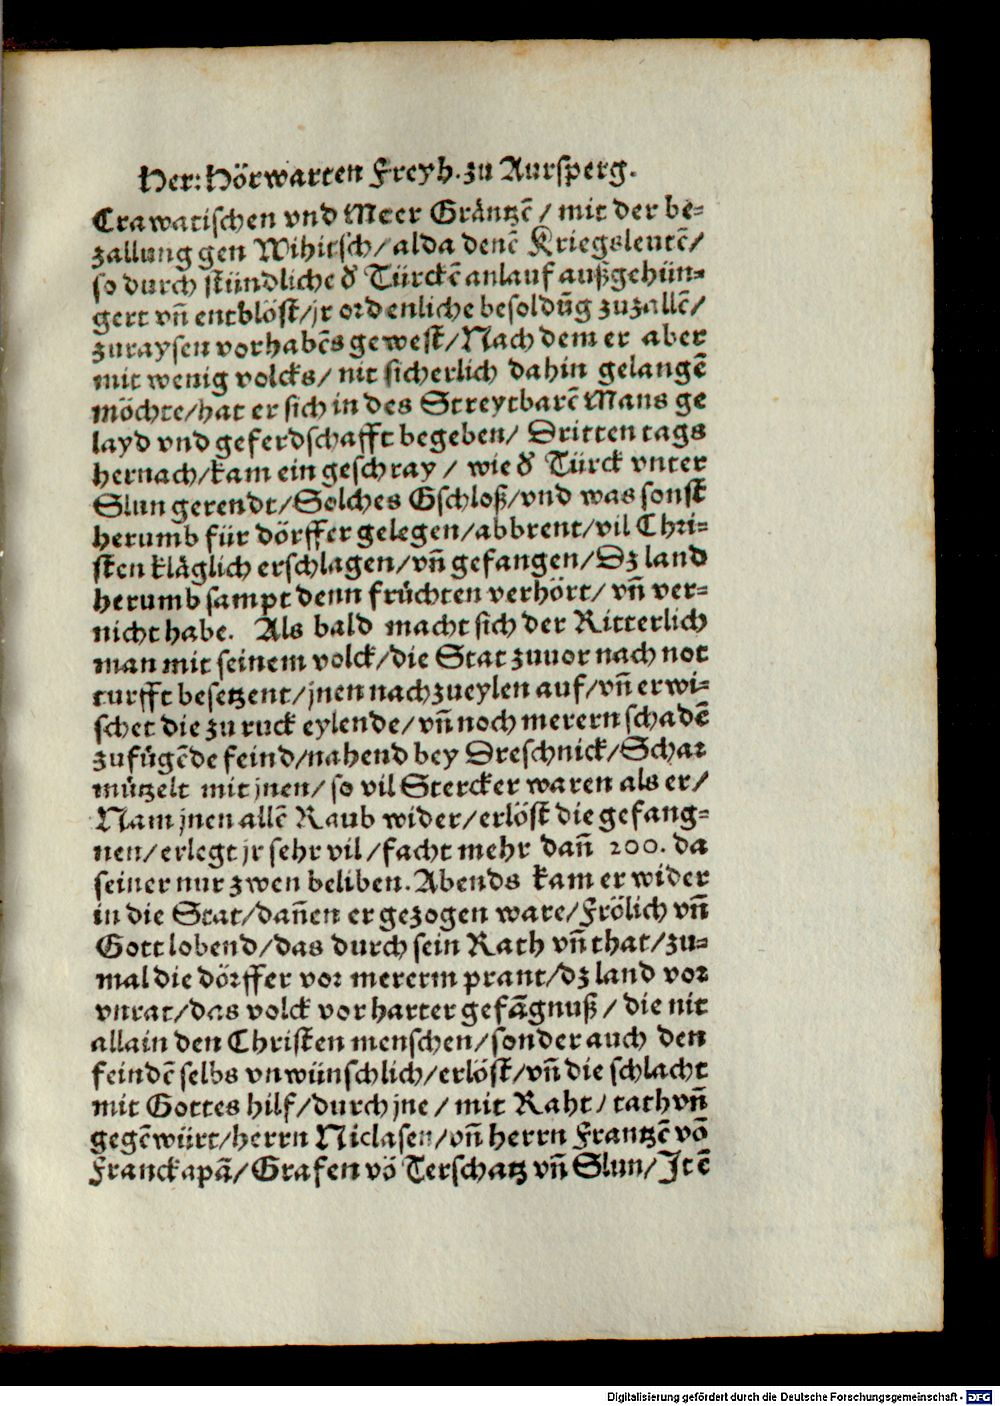 Her: Hörwarten Freyh. zu Aursperg.
Crawatischen vnd Meer Gräntzē / mit der be⸗
zallung gen Wihitsch / alda denē Kriegsleutē /
so durch stündliche d' Türckē anlauf außgehün⸗
gert vn̄ entblöst / jr ordenliche besoldūg zuzallē /
zuraysen vorhabēs gewest / Nach dem er aber
mit wenig volcks / nit sicherlich dahin gelangē
möchte / hat er sich in des Streytbarē Mans ge
layd vnd geferdschafft begeben / Dritten tags
hernach / kam ein geschray / wie d' Türck vnter
Slun gerendt / Solches Gschloß / vnd was sonst
herumb für dörffer gelegen / abbrent / vil Chri⸗
sten kläglich erschlagen / vn̄ gefangen / Dz land
herumb sampt denn früchten verhört / vn̄ ver⸗
nicht habe. Als bald macht sich der Ritterlich
man mit seinem volck / die Stat zuuor nach not
turfft besetzent / jnen nachzueylen auf / vn̄ erwi⸗
schet die zu ruck eylende / vn̄ noch merern schadē
zufügēde feind / nahend bey Dreschnick / Schar
mützelt mit jnen / so vil Stercker waren als er /
Nam jnen allē Raub wider / erlöst die gefang⸗
nen / erlegt jr sehr vil / facht mehr dan̄ 200. da
seiner nur zwen beliben. Abends kam er wider
in die Stat / dan̄en er gezogen ware / Frölich vn̄
Gott lobend / das durch sein Rath vn̄ that / zu⸗
mal die dörffer vor mererm prant / dz land vor
vnrat / das volck vor harter gefāgnuß / die nit
allain den Christen menschen / sonder auch den
feindē selbs vnwünschlich / erlöst / vn̄ die schlacht
mit Gottes hilf / durch jne / mit Raht / tath vn̄
gegēwürt / herrn Niclasen / vn̄ herrn Frantzē vō
Franckapā / Grafen vō Terschatz vn̄ Slun / Itē
Digitalisierung gefördert durch die Deutsche Forschungsgemeinschaft - DFG